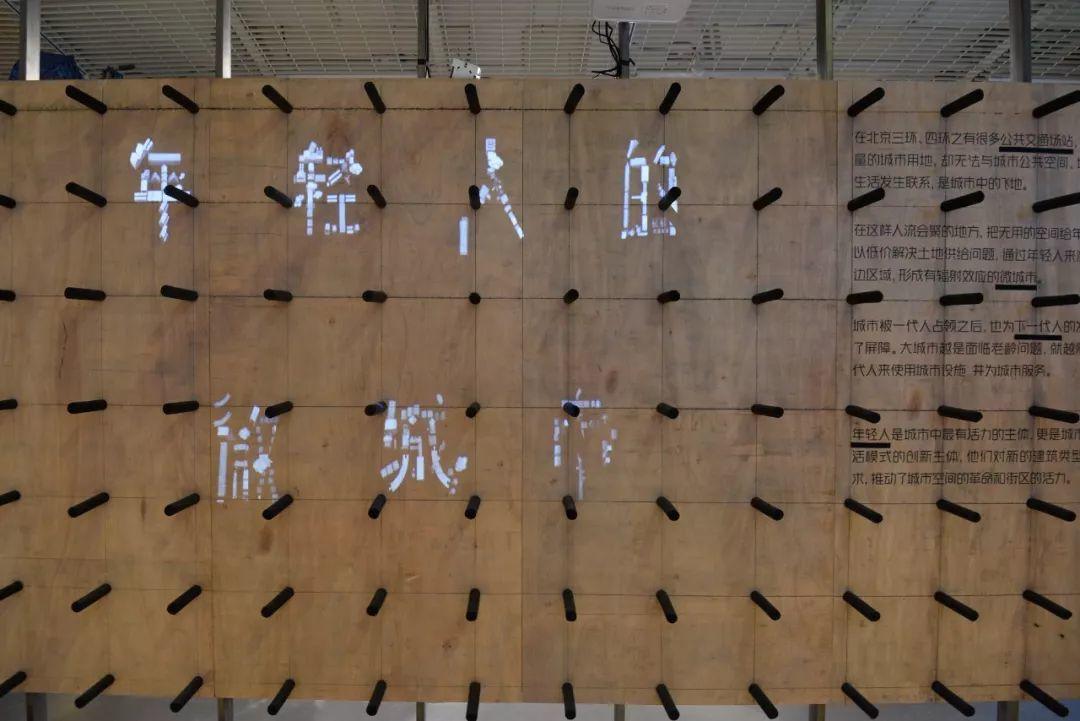 年轻人的
微城市
在北京三环、四环之有很多公共交通场站，
量的城市用地，却无法与城市公共空间、
生活发生联系，是城市中的飞地。
在这样人流会聚的地方，把无用的空间给年
以低价解决土地供给问题，通过年轻人来
边区域，形成有辐射效应的微城市。
城市被一代人占领之后，也为下一代人的
了屏障。大城市越是面临老龄问题，就越
代人来使用城市设施 并为城市服务。
年轻人是城市中最有活力的主体，更是城市
活模式的创新主体，他们对新的建筑类型
求，推动了城市空间的革命和街区的活力。